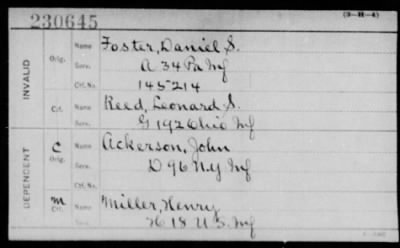 230645 (3-H-4)
INVALID
Orig. Name Foster, Daniel S.
Serv. A 34 Pa Inf
Ctf. No. 145214
Ctf. Name Reed, Leonard S.
Serv. G 192 Ohio Inf
DEPENDENT
C Orig. Name Ackerson, John
Serv. D 96 N.Y Inf
Ctf. No.
M Ctf. Name Miller, Henry
Serv. H 18 U.S. Inf